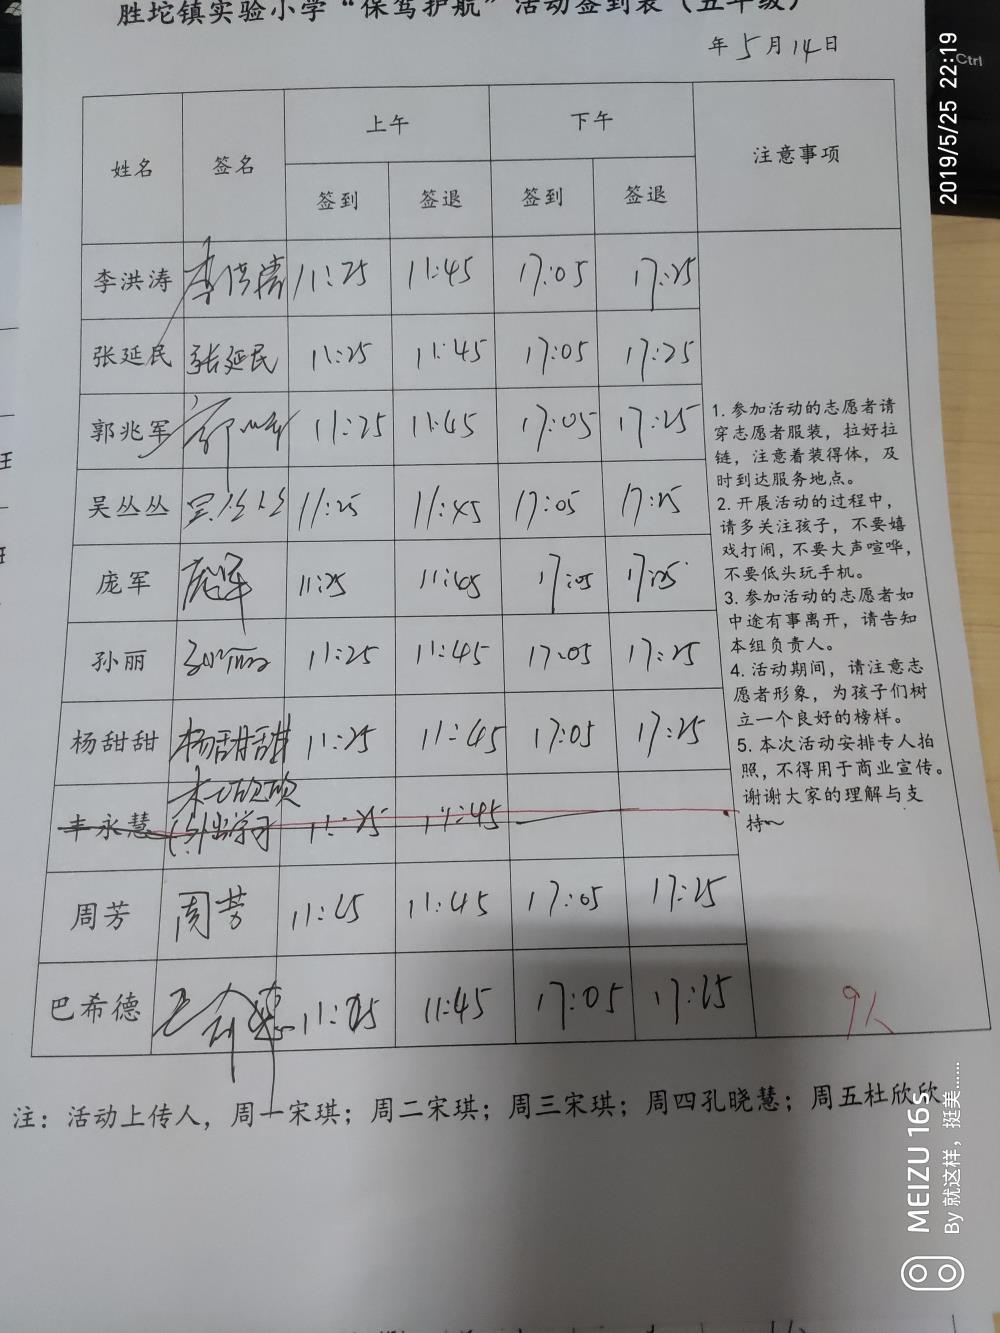 胜坨镇实验小学“保驾护航”活动签到表（五年级）
年5月14日
姓名 签名 上午 下午 注意事项
签到 签退 签到 签退
李洪涛 李洪涛 11:25 11:45 17:05 17:25
张延民 张延民 11:25 11:45 17:05 17:25
郭兆军 11:25 11:45 17:05 17:25
吴丛丛 吴丛丛 11:25 11:45 17:05 17:25
庞军 庞军 11:25 11:45 17:05 17:25
孙丽 孙丽 11:25 11:45 17:05 17:25
杨甜甜 杨甜甜 11:25 11:45 17:05 17:25
杜欣欣
丰永慧 (外出学习 11:25 11:45
周芳 周芳 11:25 11:45 17:05 17:25
巴希德 巴希德 11:25 11:45 17:05 17:25
1. 参加活动的志愿者请
穿志愿者服装，拉好拉
链，注意着装得体，及
时到达服务地点。
2. 开展活动的过程中，
请多关注孩子，不要嬉
戏打闹，不要大声喧哗，
不要低头玩手机。
3. 参加活动的志愿者如
中途有事离开，请告知
本组负责人。
4. 活动期间，请注意志
愿者形象，为孩子们树
立一个良好的榜样。
5. 本次活动安排专人拍
照，不得用于商业宣传。
谢谢大家的理解与支
持~
9人
注：活动上传人，周一宋琪；周二宋琪；周三宋琪；周四孔晓慧；周五杜欣欣
2019/5/25 22:19
Ctrl
MEIZU 16s
By 就这样，挺美......